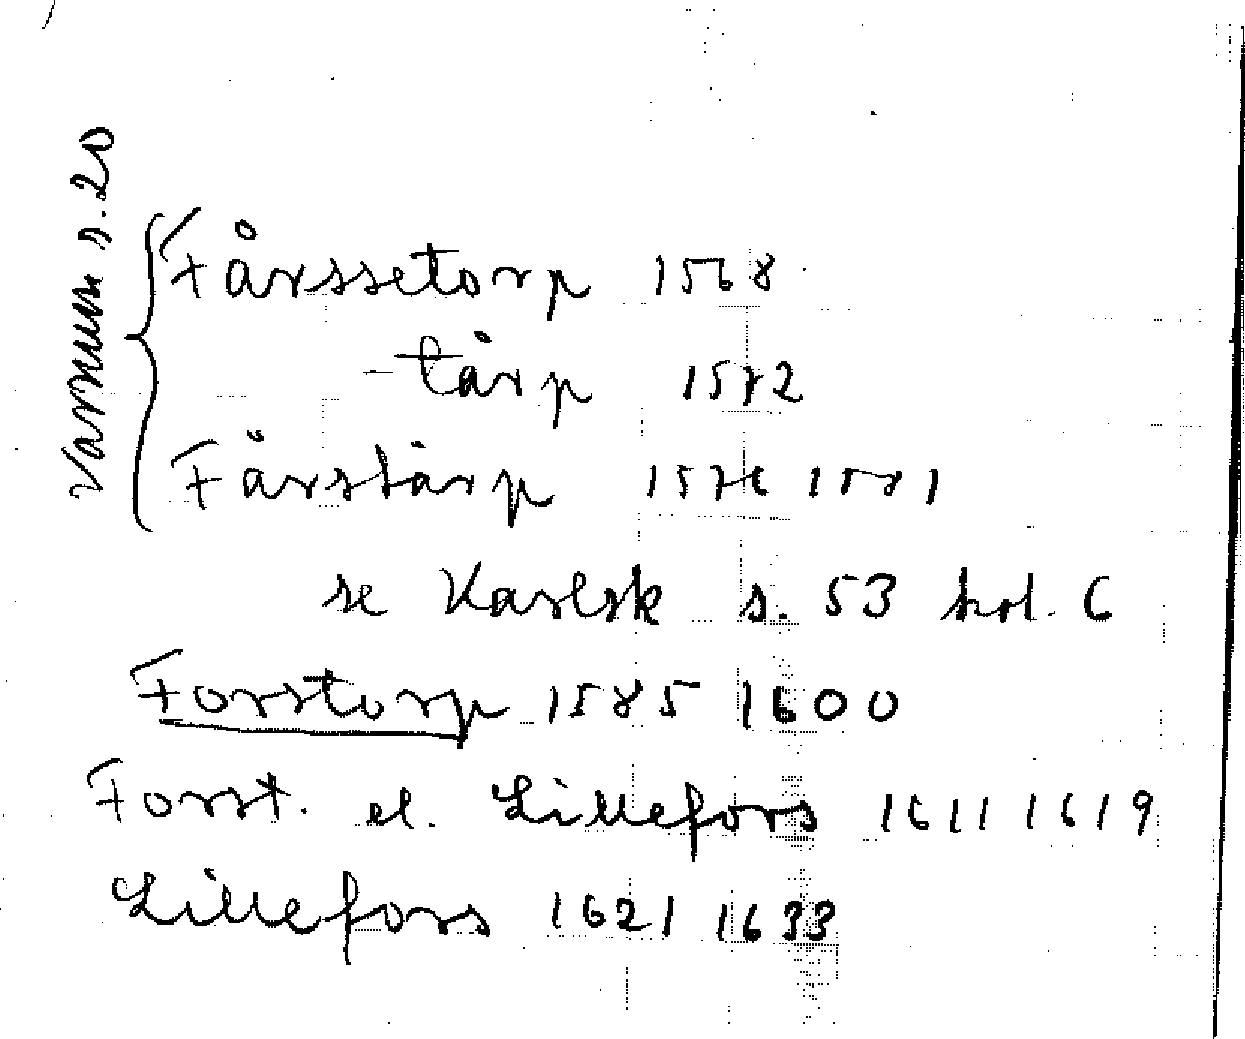 Varnum s. 20
Fårssetorp 1568
- tårp 1582
Fårstårp 1576 1581
se Karlsk s. 53 kol. 6
Forstorp 1585 1600
Forst. el. Lillefors 1611 1619
Lillefors 1621 1633